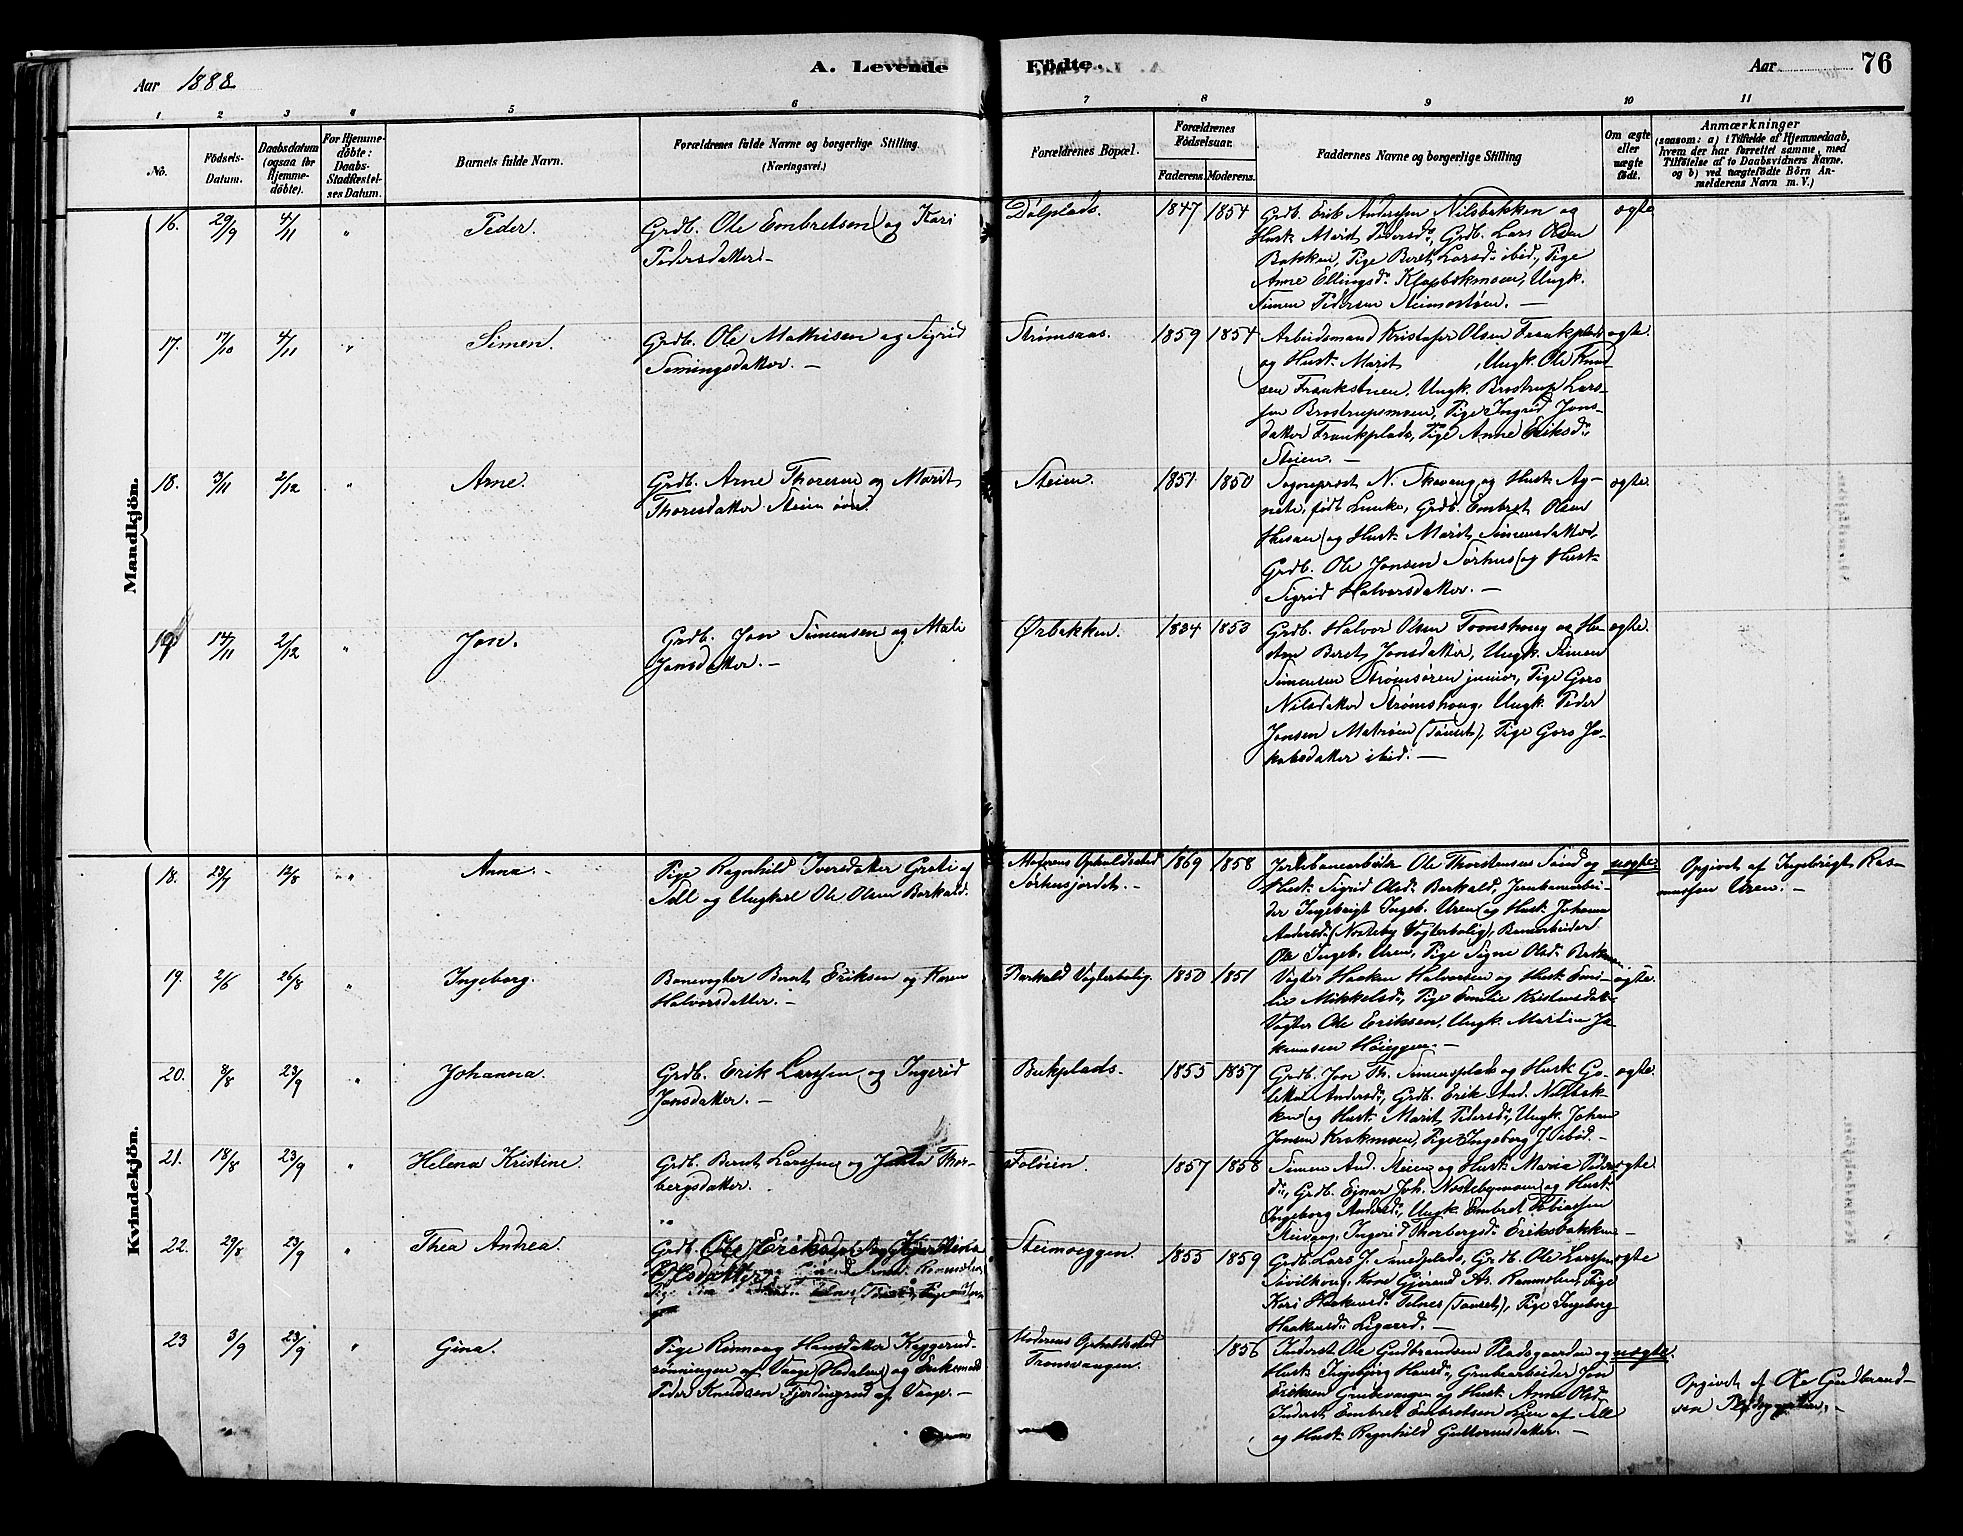 Aar 1888
A. Levende Födte.
Aar
76
1 2 3 4 5 6 7 8 9 10 11
No.
Födsels-Datum.
Daabsdatum (ogsaa for Hjemmedöbte).
For Hjemmedöbte: Daabs Stadfæstelses Datum.
Barnets fulde Navn.
Forældrenes fulde Navne og borgerlige Stilling. (Næringsvei.)
Forældrenes Bopæl.
Forældrenes Födselsaar.
Faderens. Moderens.
Faddernes Navne og borgerlige Stilling
Om ægte eller uægte født.
Anmærkninger
(saasom: a) i Tilfælde af Hjemmedaab,
hvem der har forrettet samme, med
Tilföielse af to Daabsvidners Navne.
og b) ved uægtefödte Börn An-
melderens Navn m. V.)
Mandkjön.
16. 29/9 4/11 " Peder.
Grdb. Ole Embretsen og Kari
Pedersdatter. —
Dølplads. 1847 1854
Grdb. Erik Andersen Nilsbakken og
Hust. Marit Pedersd., Grdb. Lars Olsen
Bakken, Pige Beret Larsd. ibid., Pige
Anne Ellingsd. Klopbakmoen, Ungk.
Simen Pedersen Steimostøen. —
ægte
17. 17/10 4/11 " Simen.
Grdb. Ole Mathisen og Sigrid
Simingsdatter. —
Strømsaas. 1859 1854
Arbeidsmand Kristofer Olsen Frankplads
og Hust. Marit , Ungk. Ole Knud
sen Frankstuen, Ungk. Brostrup Lars-
sen Brostrupsmoen, Pige Ingrid Jons-
datter Frankplads, Pige Anne Eriksd.
Steien. —
ægte.
18. 3/11 2/12 " Arne.
Grdb. Arne Thoresen og Marit
Thoresdatter Steien øvre.
Steien. 1851 1850
Sogneprest N. Skavang og Hust. Ag-
nete, født Lunke, Grdb. Embret Olsen
Husan og Hust. Marit Simensdatter,
Grdb. Ole Jonsen Sørhus og Hust.
Sigrid Halvorsdatter. —
ægte.
19. 14/11 2/12 " Jon.
Grdb. Jon Simensen og Mali
Jonsdatter. —
Ørbakken. 1834 1853
Grdb. Halvor Olsen Tronshoug og Hu-
stru Beret Jonsdatter, Ungk. Simen
Simensen Strømsøren junior, Pige Goro
Nilsdatter Strømshoug, Ungk. Peder
Jonsen Matrøen (Tønset), Pige Goro Ja-
kobsdatter ibid. —
ægte.
Kvindekjön.
18. 23/7 12/8 " Anna. —
Pige Ragnhild Iversdatter Grøti af
Sell og Ungkarl Ole Olsen Barkald.
Moderens Opholdssted
Sørhusjordet. — 1869 1858
Jernbanearbeider Ole Thorstensen Sund og
Hust. Sigrid Olsd. Barkald, Jernbanearbei-
der Ingebrigt Ingeb. Uren og Hust. Johanna
Andersd. (Nosteby Vogterbolig), Banearbeider
Ole Ingeb. Uren, Pige Signe Olsd. Barkald
uægte.
Opgivet af Ingebrigt Ras-
mussen Uren. —
19. 2/6 26/8 " Ingeborg.
Banevogter Bernt Eriksen og Karen
Halvorsdatter. —
Barkald Vogterbolig. 1850 1851
Vogter Haaken Halvorsen og Hust. Emi-
lie Mikkelsd., Pige Emilie Kristensdatter
Vogter Ole Eriksen, Ungk. Martin Ja-
kobsen Høieggen. —
ægte.
20. 8/8 23/9 " Johanna.
Grdb. Erik Larssen og Ingerid
Jonsdatter. —
Bækplads. 1855 1857
Grdb. Jon Th. Simensplads og Hust. Go-
letta Andersd., Grdb. Erik And. Nilsbak-
ken og Hust. Marit Pedersd., Ungk. Johan
Jonsen Krokmoen, Pige Ingeborg J. ibid. —
ægte.
21. 18/8 23/9 " Helena Kristine.
Grdb. Bernt Larssen og Thor-
bergsdatter.
Foløien. 1857 1858
Simen And. Steien og Hust. Maria Peders
d., Grdb. Ejnar Joh. Nostebymoen og Hust.
Ingeborg Andersd., Ungk. Embret Tobiassen
Steivang, Ingerid Thorbergsd. Eriksbakken —
ægte.
22. 29/8 23/9 " Thea Andrea.
Grdb. Ole Eriksen og Kjerstina
Steimoeggen. 1855 1859
Grdb. Lars J. Smedplads, Grdb. Ole Larssen
Søvilkoug, Kone Gjørand As. Rammolien, Pige
Kari Haakensd. Telnes (Tønset), Pige Ingeborg
Haakensd. Ligaard. —
ægte
23 3/9 23/9 " Gina.
Pige Rønnaug Hansdatter Kæggerud-
rønningen af Vaage (Hedalen) og Enkemand
Peder Knudsen Fjerdingrud af Vaage. —
Moderens Opholdssted
Tronsvangen. 1856
Inderst Ole Gudbrandsen Pladsgaarden og
Hust. Ingebjørg Hansd., Grubearbeider Jon
Eriksen Grubevangen og Hust. Anne Olsd.
Inderst Embret Embretsen Lien af Sell
og Hust. Ragnhild Guttormsdatter. —
uægte.
Opgivet af Ole Gudbrand-
sen Pladsgaarden. —